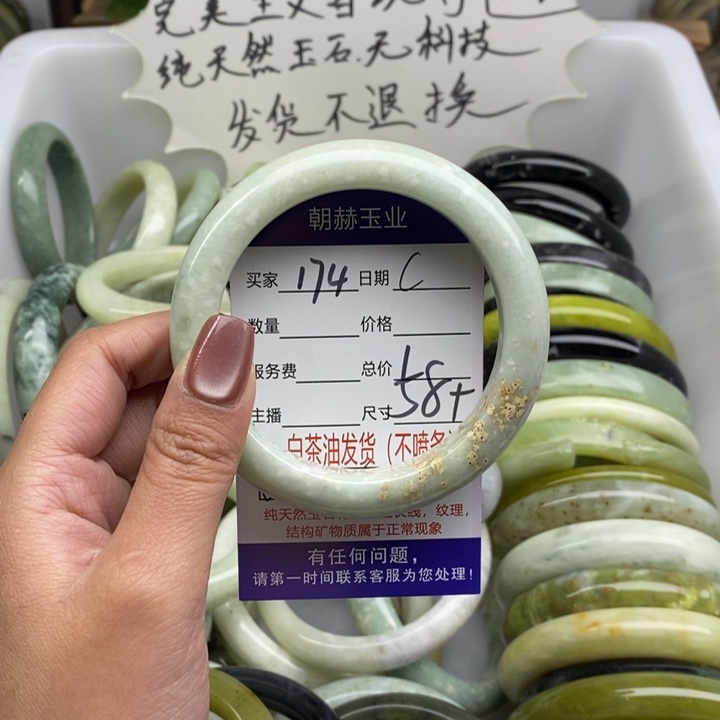 完美主义者
纯天然玉石.无科技
发货不退换
朝赫玉业
买家 174 日期 C
数量 价格
服务费 总价
主播 尺寸 58+
白茶油发货（不喷
纯天然玉石
纹理，
结构矿物质属于正常现象
有任何问题，
请第一时间联系客服为您处理！